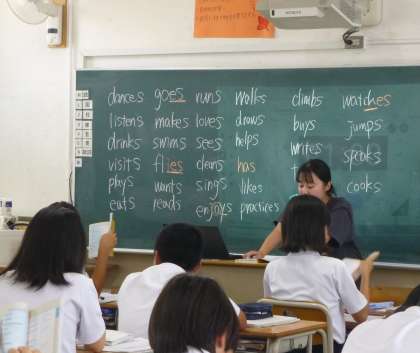 dances goes runs walks climbs watches
listens makes loves draws buys jumps
drinks swims sees helps writes speaks
visits flies cleans has
plays wants sings likes cooks
eats reads enjoys practices
HITACHI